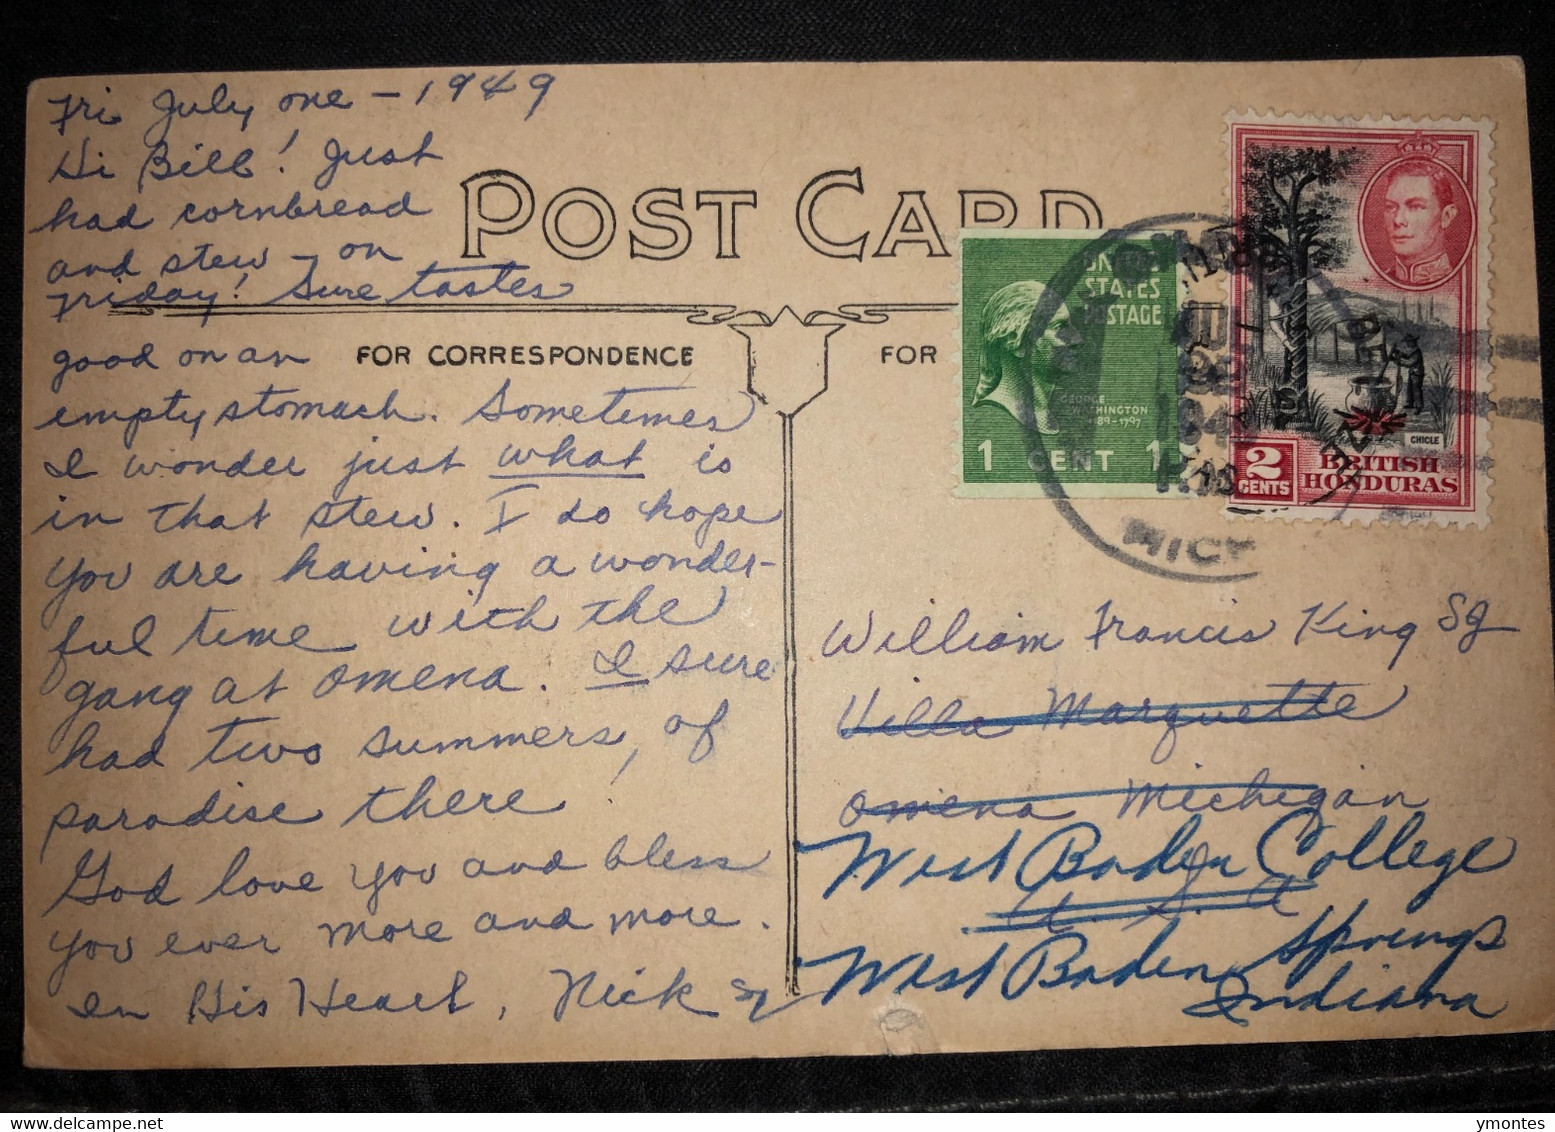 Fri July one - 1949
Hi Bill! Just
had cornbread
and stew - on
Friday! Sure tastes
good on an
empty stomach. Sometimes
I wonder just what is
in that stew. I do hope
you are having a wonder-
ful time with the
gang at Omena. I sure
had two summers, of
paradise there!
God love you and bless
you ever more and more.
In His Heart, Nick SJ
POST CARD
FOR CORRESPONDENCE
FOR
UNITED
STATES
POSTAGE
GEORGE
WASHINGTON
1789-1797
1 CENT 1
MICH
CHICLE
2
CENTS
BRITISH
HONDURAS
William Francis King SJ
Villa Marquette
Omena Michigan
U. S. A
West Baden College
West Baden Springs
Indiana
ymontes